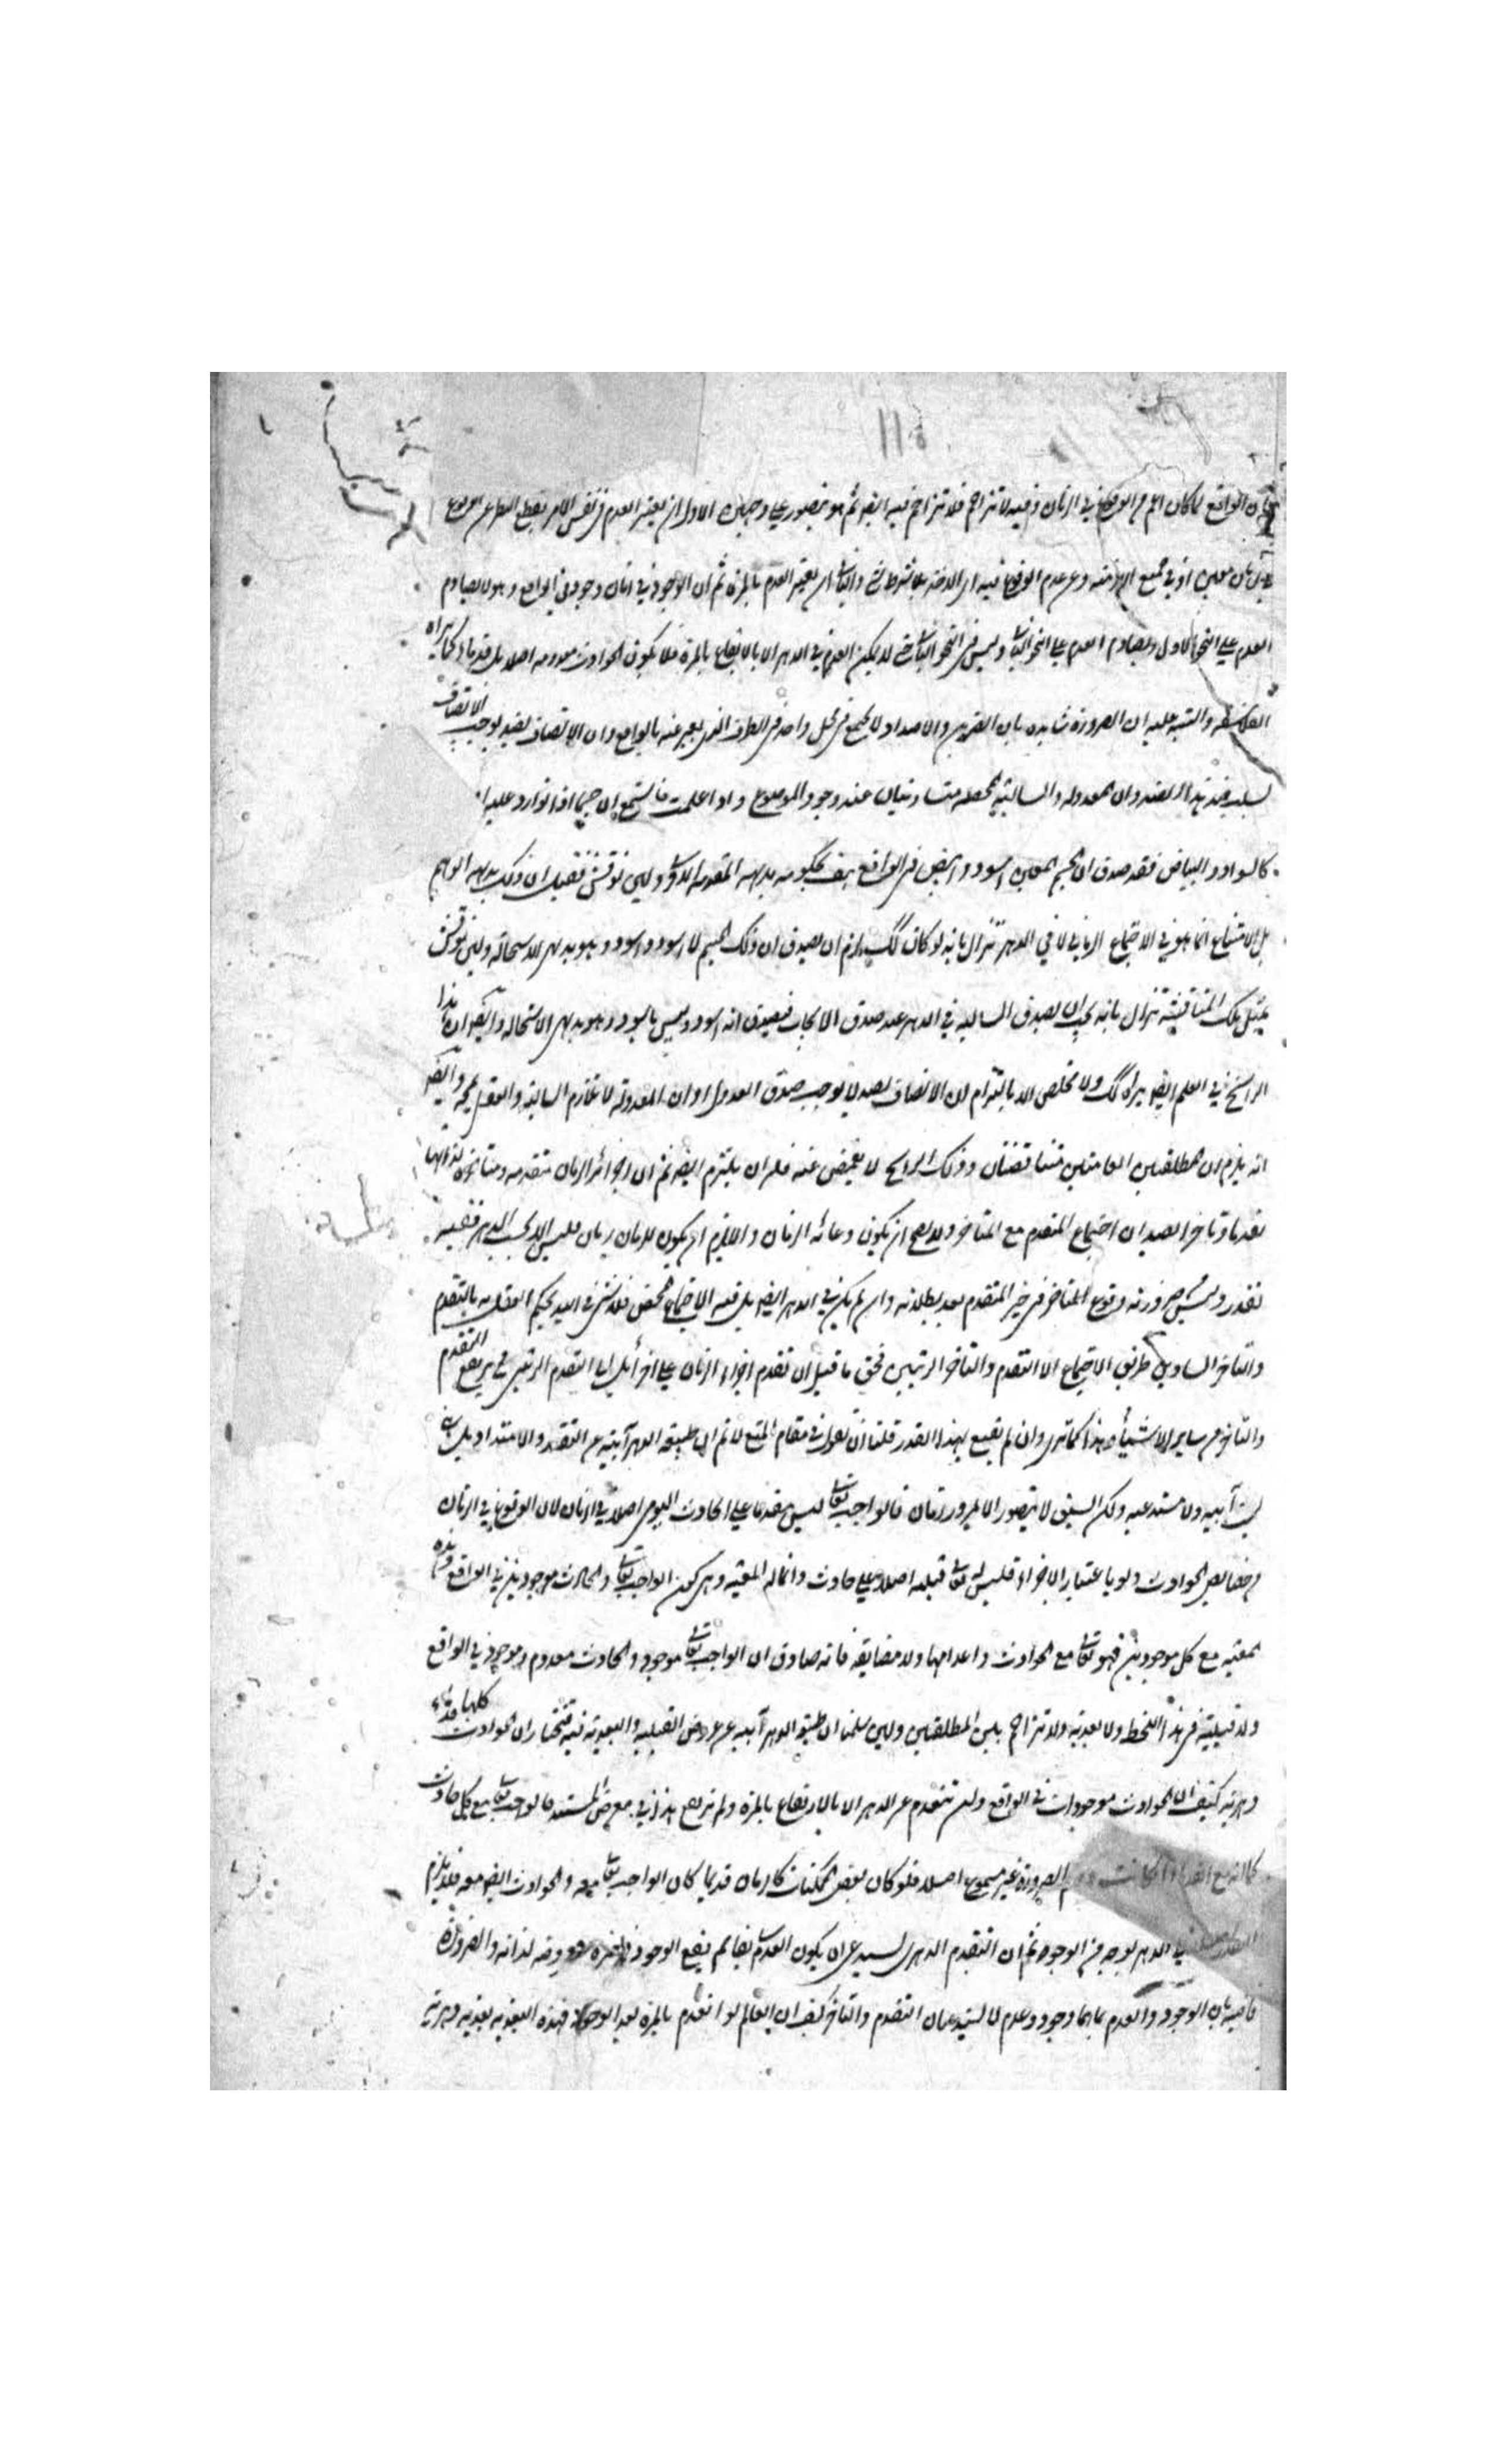 الواقع لما كان اعم من الوقوع في الزمان وفيه لا تزاحم فلا تزاحم فيه ايضا ثم هو يتصور على وجهين الاول ان يعتبر العدم في نفس الامر بقطع النظر عن الوقوع
في زمان معين او في جميع الازمنة وعن عدم الوقوع فيه اي لا بشرط شئ والثاني ان يعتبر العدم بالمرة ثم ان الوجود في زمان وجود في الواقع وهو لا يصادم
العدم على النحو الاول ويصادم العدم على النحو الثاني وليس في النحو الثاني لم يكن العدم في الدهر الا بالارتفاع بالمرة فلا يكون الحوادث معدومة اصلا بل قدماء كما يراه
الفلاسفة والتنبيه عليه ان الضرورة شاهدة بان الضدين والاضداد لا يجتمع في محل واحد في الظرف الذي يعبر عنه بالواقع وان الاتصاف بضد يوجب الاتصاف
بسلب ضد هذا الضد وان المعدولة والسالبة المحصلة متساويتان عند وجود الموضوع واذا علمت فاستمع ان جسما اذا توارد عليه
كالسواد والبياض فقد صدق ان الجسم المعين اسود وابيض في الواقع هف بحكومة بديهة المقدمة الاولى ولئن نوقش فقيل ان ذلك بديهة الواهم
بل الامتناع انما هو في الاجتماع الزماني لا في الدهر تنزل بانه لو كان كك يلزم ان يصدق ان ذلك الجسم لا اسود واسود وهو بديهي الاستحالة ولئن نوقش
بمثل تلك المناقشة تنزل بانه يجب ان يصدق السالبة في الدهر عند صدق الايجاب فيصدق انه اسود وليس باسود وهو بديهي الاستحالة وايضا ان هذا
الراسخ في العلم ايضا يراه كك ولا مخلص الا بالتزام ان الاتصاف بضد لا يوجب صدق العدول او ان المعدولة لا تلازم السالبة والعقل يمجه وايضا
انه يلزم ان المطلقتين العامتين متناقضتان وذلك الراسخ لا يغمض عنه فله ان يلتزم ايضا ثم ان اجزاء الزمان متقدمة ومتاخرة لذاتها
تقدما وتاخرا بصدد ان اجتماع المتقدم مع المتاخر ولا يصح ان يكون وعائه الزمان والا يلزم ان يكون للزمان زمان فليس الا بحسب الدهر ففيه
تقدر وليس ضرورته وقوع المتاخر في حيز المتقدم بعد بطلانه وان لم يكن في الدهر ايضا بل فيه الاجتماع المحض فلا شئ في اليد يحكم العقل به بالتقدم
والتاخر الساوي طرفي الاجتماع الا التقدم والتاخر الرتبيين فحق ما قيل ان تقدم اجزاء الزمان على اجزائه انما التقدم الرتبي ثم يرتفع التقدم
والتاخر من سائر الاشياء هذا كما ترى وان لم يقنع بهذا القدر قلنا ان نقول في مقام المنع لا نم ان طبيعة الدهر آبية عن التقدر والامتداد بل
ليست آبية ولا مستدعية ولكن السبق لا يتصور الا بمرور زمان فالواجب تعالى ليس متقدما على الحادث اليومي اصلا في الزمان لان الوقوع في الزمان
من خصائص الحوادث ولو باعتبار الاجزاء فليس له تعالى قبلية اصلا على حادث وانما له المعية وهي كون الواجب تعالى والحادث موجودين في الواقع وهذه
المعية مع كل موجودين فهو تعالى مع الحوادث واعدامها ولا مضايقة فانه صادق ان الواجب تعالى موجود والحادث معدوم وموجود في الواقع
ولا قبلية في هذا النحو ولا بعدية ولا تزاحم بين المطلقتين ولئن سلمنا ان طبيعة الدهر آبية عن عروض القبلية والبعدية فيه فنختار ان الحوادث كلها قدماء
دهرية كيف ان الحوادث موجودات في الواقع ولن تنعدم عن الدهر الا بالارتفاع بالمرة ولم نرهم هذا في معرض المستند فالواجب تعالى مع كل حادث
الضرورة غير مسموع اصلا فلو كان بعض الممكنات كالزمان قديما كان الواجب تعالى معه والحوادث ايضا معه فلا يلزم
في الدهر بوجه من الوجوه ثم ان التقدم الدهري يستدعي ان يكون العدم سابقا ثم يقع الوجود في لذاته والضرورة
قاضية بان الوجود والعدم بما هما وجود وعدم لا يستدعيان التقدم والتاخر كيف ان العالم لو انعدم بالمرة بعد الوجود فهذه البعدية بعدية دهرية